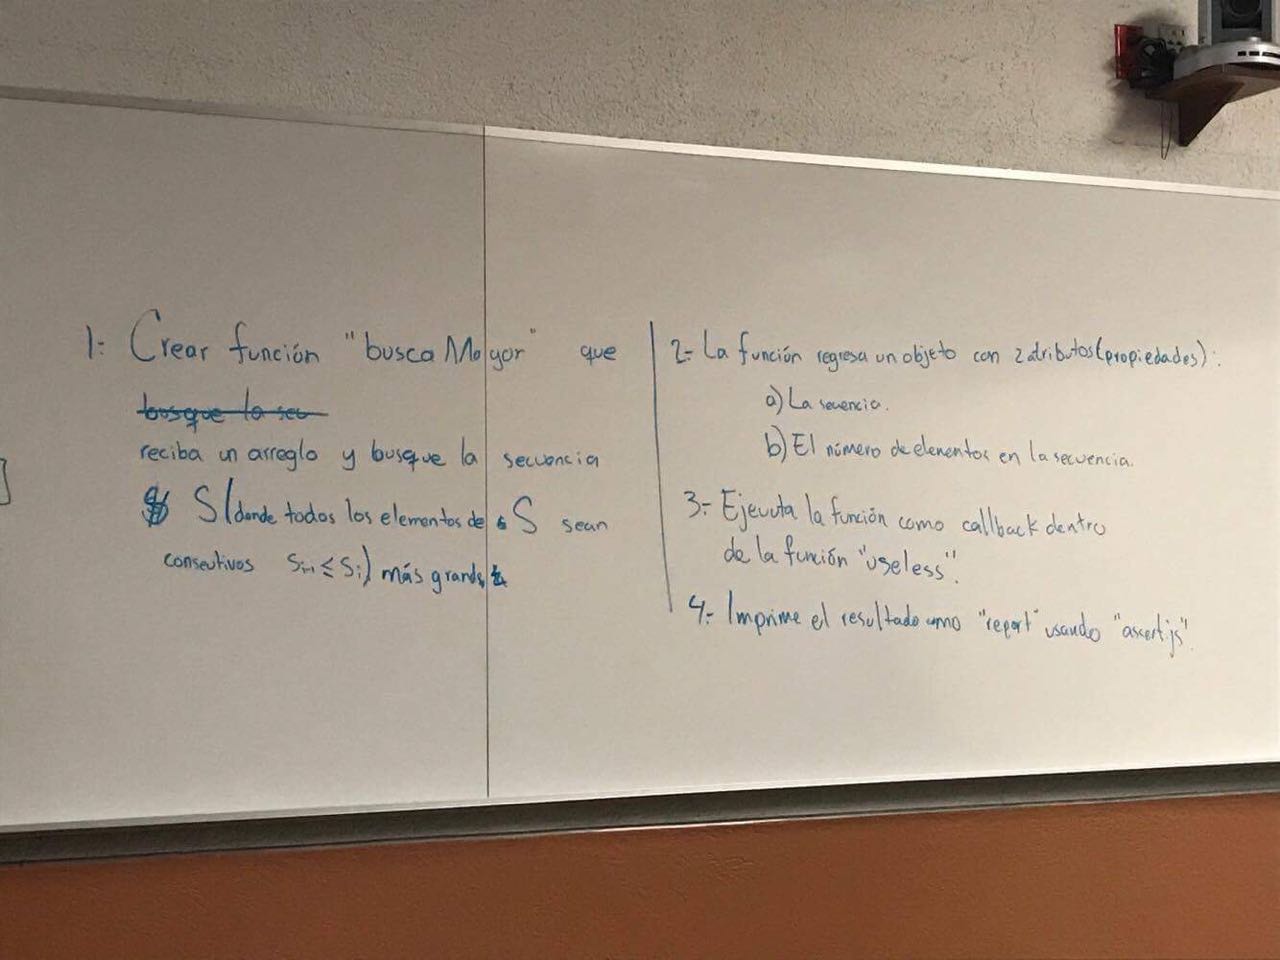 1: Crear función "buscaMayor" que
busque la sec
reciba un arreglo y busque la secuencia
S (donde todos los elementos de S sean
consecutivos Si-1 ≤ Si) más grande
2.- La función regresa un objeto con 2 atributos (propiedades):
a) La secuencia.
b) El número de elementos en la secuencia.
3.- Ejecuta la función como callback dentro
de la función "useless".
4.- Imprime el resultado como "report" usando "assert.js".